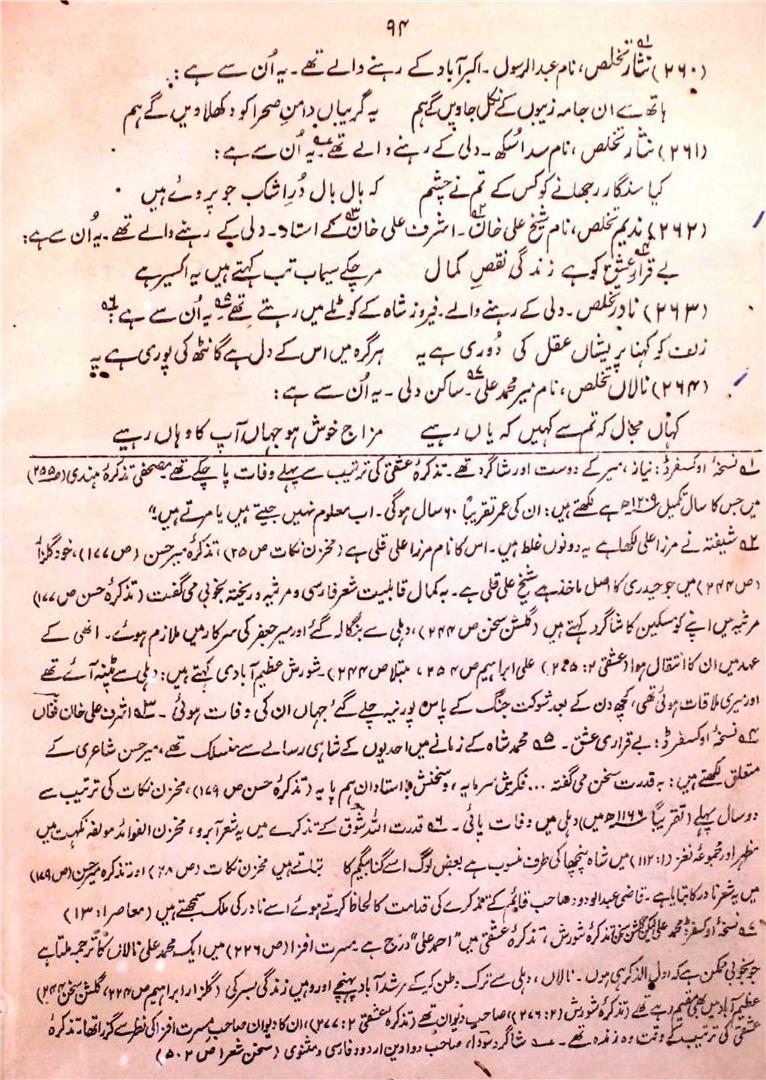 ۹۴
(۲۶۰) نثار تخلص، نام عبدالرسول ۔ اکبرآباد کے رہنے والے تھے ۔ یہ اُن سے ہے :
ہاتھ سے ان جامہ زیبوں کے نکل جاویں گے ہم یہ گریباں دامنِ صحرا کو دکھلاویں گے ہم
(۲۶۱) نثار تخلص، نام سدا سُکھ ۔ دلی کے رہنے والے تھے ۔ یہ اُن سے ہے :
کیا سنگار رجھانے کو کس کے تم نے چشم کہ بال بال دُرِ اشک جو پروئے ہیں
(۲۶۲) ندیم تخلص، نام شیخ علی خاں ۔ اشرف علی خاں کے استاد ۔ دلی کے رہنے والے تھے ۔ یہ اُن سے ہے :
بے قرار عشق کو ہے زندگی نقصِ کمال مر چکے سیماب تب کہتے ہیں یہ اکسیر ہے
(۲۶۳) نادر تخلص ۔ دلی کے رہنے والے ۔ فیروز شاہ کے کوٹلے میں رہتے تھے ۔ یہ اُن سے ہے :
زلف کو کہنا پریشاں عقل کی دُوری ہے یہ ہر گرہ میں اس کے دل ہے گانٹھ کی پوری ہے یہ
(۲۶۴) نالاں تخلص، نام میر محمد علی ۔ ساکن دلی ۔ یہ اُن سے ہے :
کہاں مجال کہ تم سے کہیں کہ یاں رہیے مزاج خوش ہو جہاں آپ کا وہاں رہیے
۱؎ نسخۂ اوکسفرڈ : نیاز، میر کے دوست اور شاگرد تھے ۔ تذکرۂ عشقی کی ترتیب سے پہلے وفات پا چکے تھے ۔ مصحفی تذکرۂ ہندی (ص ۲۵۵)
میں جس کا سال تکمیل ۱۲۰۹ھ ہے لکھتے ہیں : ان کی عمر تقریباً ۶۰ سال ہوگی ۔ اب معلوم نہیں جیتے ہیں یا مرتے ہیں ۔“
۲؎ شیفتہ نے مرزا علی لکھا ہے یہ دونوں غلط ہیں ۔ اس کا نام مرزا علی قلی ہے (مخزن نکات ص ۲۵)، تذکرۂ میر حسن (ص ۱۷۷)، خود گلزار
(ص ۲۴۴) میں جو حیدری کا اصل ماخذ ہے شیخ علی قلی ہے ۔ بہ کمال قابلیت شعر فارسی و مرثیہ و ریختہ بخوبی می گفت (تذکرۂ حسن ص ۱۷۷)
مرثیہ میں اپنے کو مسکین کا شاگرد کہتے ہیں (گلشن سخن ص ۲۴۴)، دہلی سے بنگالہ گئے اور میر جعفر کی سرکار میں ملازم ہوئے ۔ انھی کے
عہد میں ان کا انتقال ہوا (عشقی ۲ : ۲۷۵) علی ابراہیم ص ۲۵۴، مبتلا ص ۲۴۴) ۔ شورش عظیم آبادی کہتے ہیں : دہلی سے پٹنہ آئے تھے
اور میری ملاقات ہوئی تھی، کچھ دن کے بعد شوکت جنگ کے پاس پورنیہ چلے گئے جہاں ان کی وفات ہوئی ۔ ۳؎ اشرف علی خان فغاں
۴؎ نسخۂ اوکسفرڈ : بے قراری عشق ۔ ۵؎ محمد شاہ کے زمانے میں احدیوں کے شاہی رسالے سے منسلک تھے، میر حسن شاعری کے
متعلق لکھتے ہیں : بہ قدرت سخن می گفتہ ... فکرش سرمایہ، وسخنش با استادان ہم پایہ (تذکرۂ حسن ص ۱۷۹)، مخزن نکات کی ترتیب سے
دو سال پہلے (تقریباً ۱۱۶۶ھ میں) دہلی میں وفات پائی ۔ ۶؎ قدرت اللہ شوق کے تذکرے میں یہ شعر آبرو، مخزن الفوائد مولفہ نکہت میں
مظہر اور مجموعۂ نغز (۱ : ۱۱۲) میں شاہ پنچھا کی طرف منسوب ہے بعض لوگ اسے گنا بیگم کا بتاتے ہیں مخزن نکات (ص ۲۸) اور تذکرہ میر حسن (ص ۱۷۹)
میں یہ شعر نادر کا بتایا ہے ۔ قاضی عبدالودود صاحب قائم کے تذکرے کی قدامت کا لحاظ کرتے ہوئے اسے نادر کی ملک سمجھتے ہیں (معاصر ۱ : ۱۳)
۷؎ نسخۂ اوکسفرڈ محمد علی لیکن گلشن سخن تذکرۂ شورش، تذکرۂ عشقی میں ”احمد علی“ درج ہے ۔ مسرت افزا (ص ۲۲۶) میں ایک محمد علی نالاں کا ترجمہ ملتا ہے
جو بخوبی ممکن ہے کہ اول الذکر ہی ہوں ۔ نالاں، دہلی سے ترک وطن کر کے مرشدآباد پہنچے اور وہیں زندگی بسر کی (گلزار ابراہیم ص ۲۲۴، گلشن سخن ص ۲۴۴)
عظیم آباد میں بھی مقیم رہے تھے (تذکرۂ شورش ۲ : ۲۷۶)، صاحبِ دیوان تھے (تذکرۂ عشقی ۲ : ۲۷۷)، ان کا دیوان صاحب مسرت افزا کی نظر سے گزرا تھا، تذکرۂ
عشقی کی ترتیب کے وقت وہ زندہ تھے ۔ شاگرد سودا، صاحب دواوین اردو و فارسی و مثنوی (سخن شعرا ص ۵۰۲)